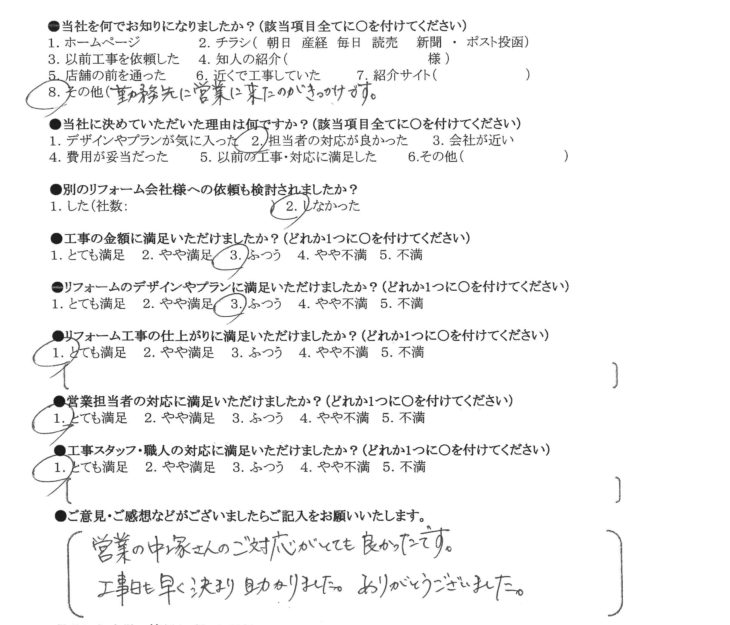 ●当社を何でお知りになりましたか？(該当項目全てに○を付けてください)
1. ホームページ 2. チラシ( 朝日 産経 毎日 読売 新聞 ・ ポスト投函)
3. 以前工事を依頼した 4. 知人の紹介( 様 )
5. 店舗の前を通った 6. 近くで工事していた 7. 紹介サイト( )
8. その他(勤務先に営業に来たのがきっかけです。
●当社に決めていただいた理由は何ですか？(該当項目全てに○を付けてください)
1. デザインやプランが気に入った 2. 担当者の対応が良かった 3. 会社が近い
4. 費用が妥当だった 5. 以前の工事・対応に満足した 6.その他( )
●別のリフォーム会社様への依頼も検討されましたか？
1. した(社数: ) 2. しなかった
●工事の金額に満足いただけましたか？(どれか1つに○を付けてください)
1. とても満足 2. やや満足 3. ふつう 4. やや不満 5. 不満
●リフォームのデザインやプランに満足いただけましたか？(どれか1つに○を付けてください)
1. とても満足 2. やや満足 3. ふつう 4. やや不満 5. 不満
●リフォーム工事の仕上がりに満足いただけましたか？(どれか1つに○を付けてください)
1. とても満足 2. やや満足 3. ふつう 4. やや不満 5. 不満
●営業担当者の対応に満足いただけましたか？(どれか1つに○を付けてください)
1. とても満足 2. やや満足 3. ふつう 4. やや不満 5. 不満
●工事スタッフ・職人の対応に満足いただけましたか？(どれか1つに○を付けてください)
1. とても満足 2. やや満足 3. ふつう 4. やや不満 5. 不満
●ご意見・ご感想などがございましたらご記入をお願いいたします。
営業の中塚さんのご対応がとても良かったです。
工事日も早く決まり助かりました。ありがとうございました。